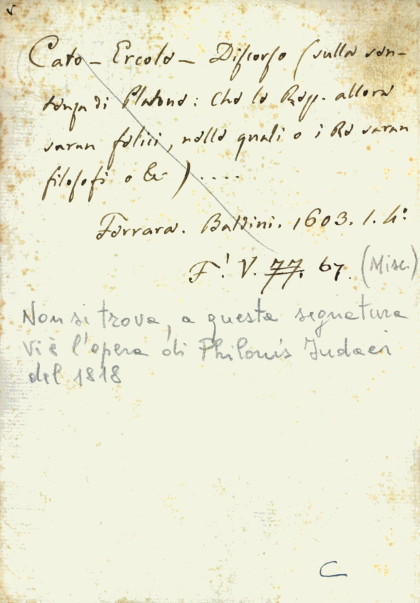 Cato - Ercole - Discorso (sulla sen-
tenza di Platone: che le Rep. allora
saran felici, nelle quali o i Re saran
filosofi o &c) ....
Ferrara. Baldini. 1603. 1. 4°
F! V. 77. 67. (Misc.)
Non si trova, a questa segnatura
vi è l'opera di Philonis Judaei
del 1818
C